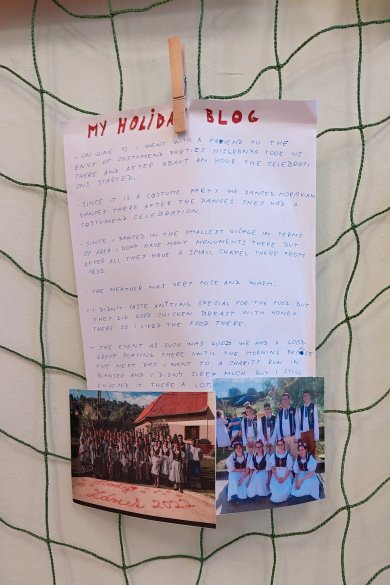 MY HOLIDAY BLOG
- ON JUNE I WENT WITH A FRIEND TO THE
EVENT OF COSTUMEND PARTIES TOOK US
THERE AND AFTER ABAUT AM HOUR THE CELEBRATI
ONS STARTED,
- SINCE IT IS A COSTUME PARTY WE DANCED MORAVIAN
DANCES THERE AFTER THE DANCES THEY HAD A
COSTUMEND CELEBRATION
- SINCE I DANCED IN THE SMALLEST VILLAGE IN TERMS
OF AREA I DONT HAVE MANY MONUMENTS THERE BUT
AFTER ALL THEY HAVE A SMALL CHAPEL THERE FROM
- THE WEATHER WAS VERY NICE AND WARM.
- I DIDN'T TASTE ANYTING SPECIAL FOR THE FOOD BUT
THEY DID GOOD CHICKEN BREAST WITH HONEY
THERE SO I LIKED THE FOOD THERE.
- THE EVENT AS SUCH WAS GOOD WE HAD A GOOD
GROUP PLAYING THERE UNTIL THE MORNING
THE NEXT DAY I WENT TO A CHARITY RUN IN
AND I DIDN'T SLEEP MUCH BUT I STILL
ENJOYED IT THERE A LOT
Hody
2022